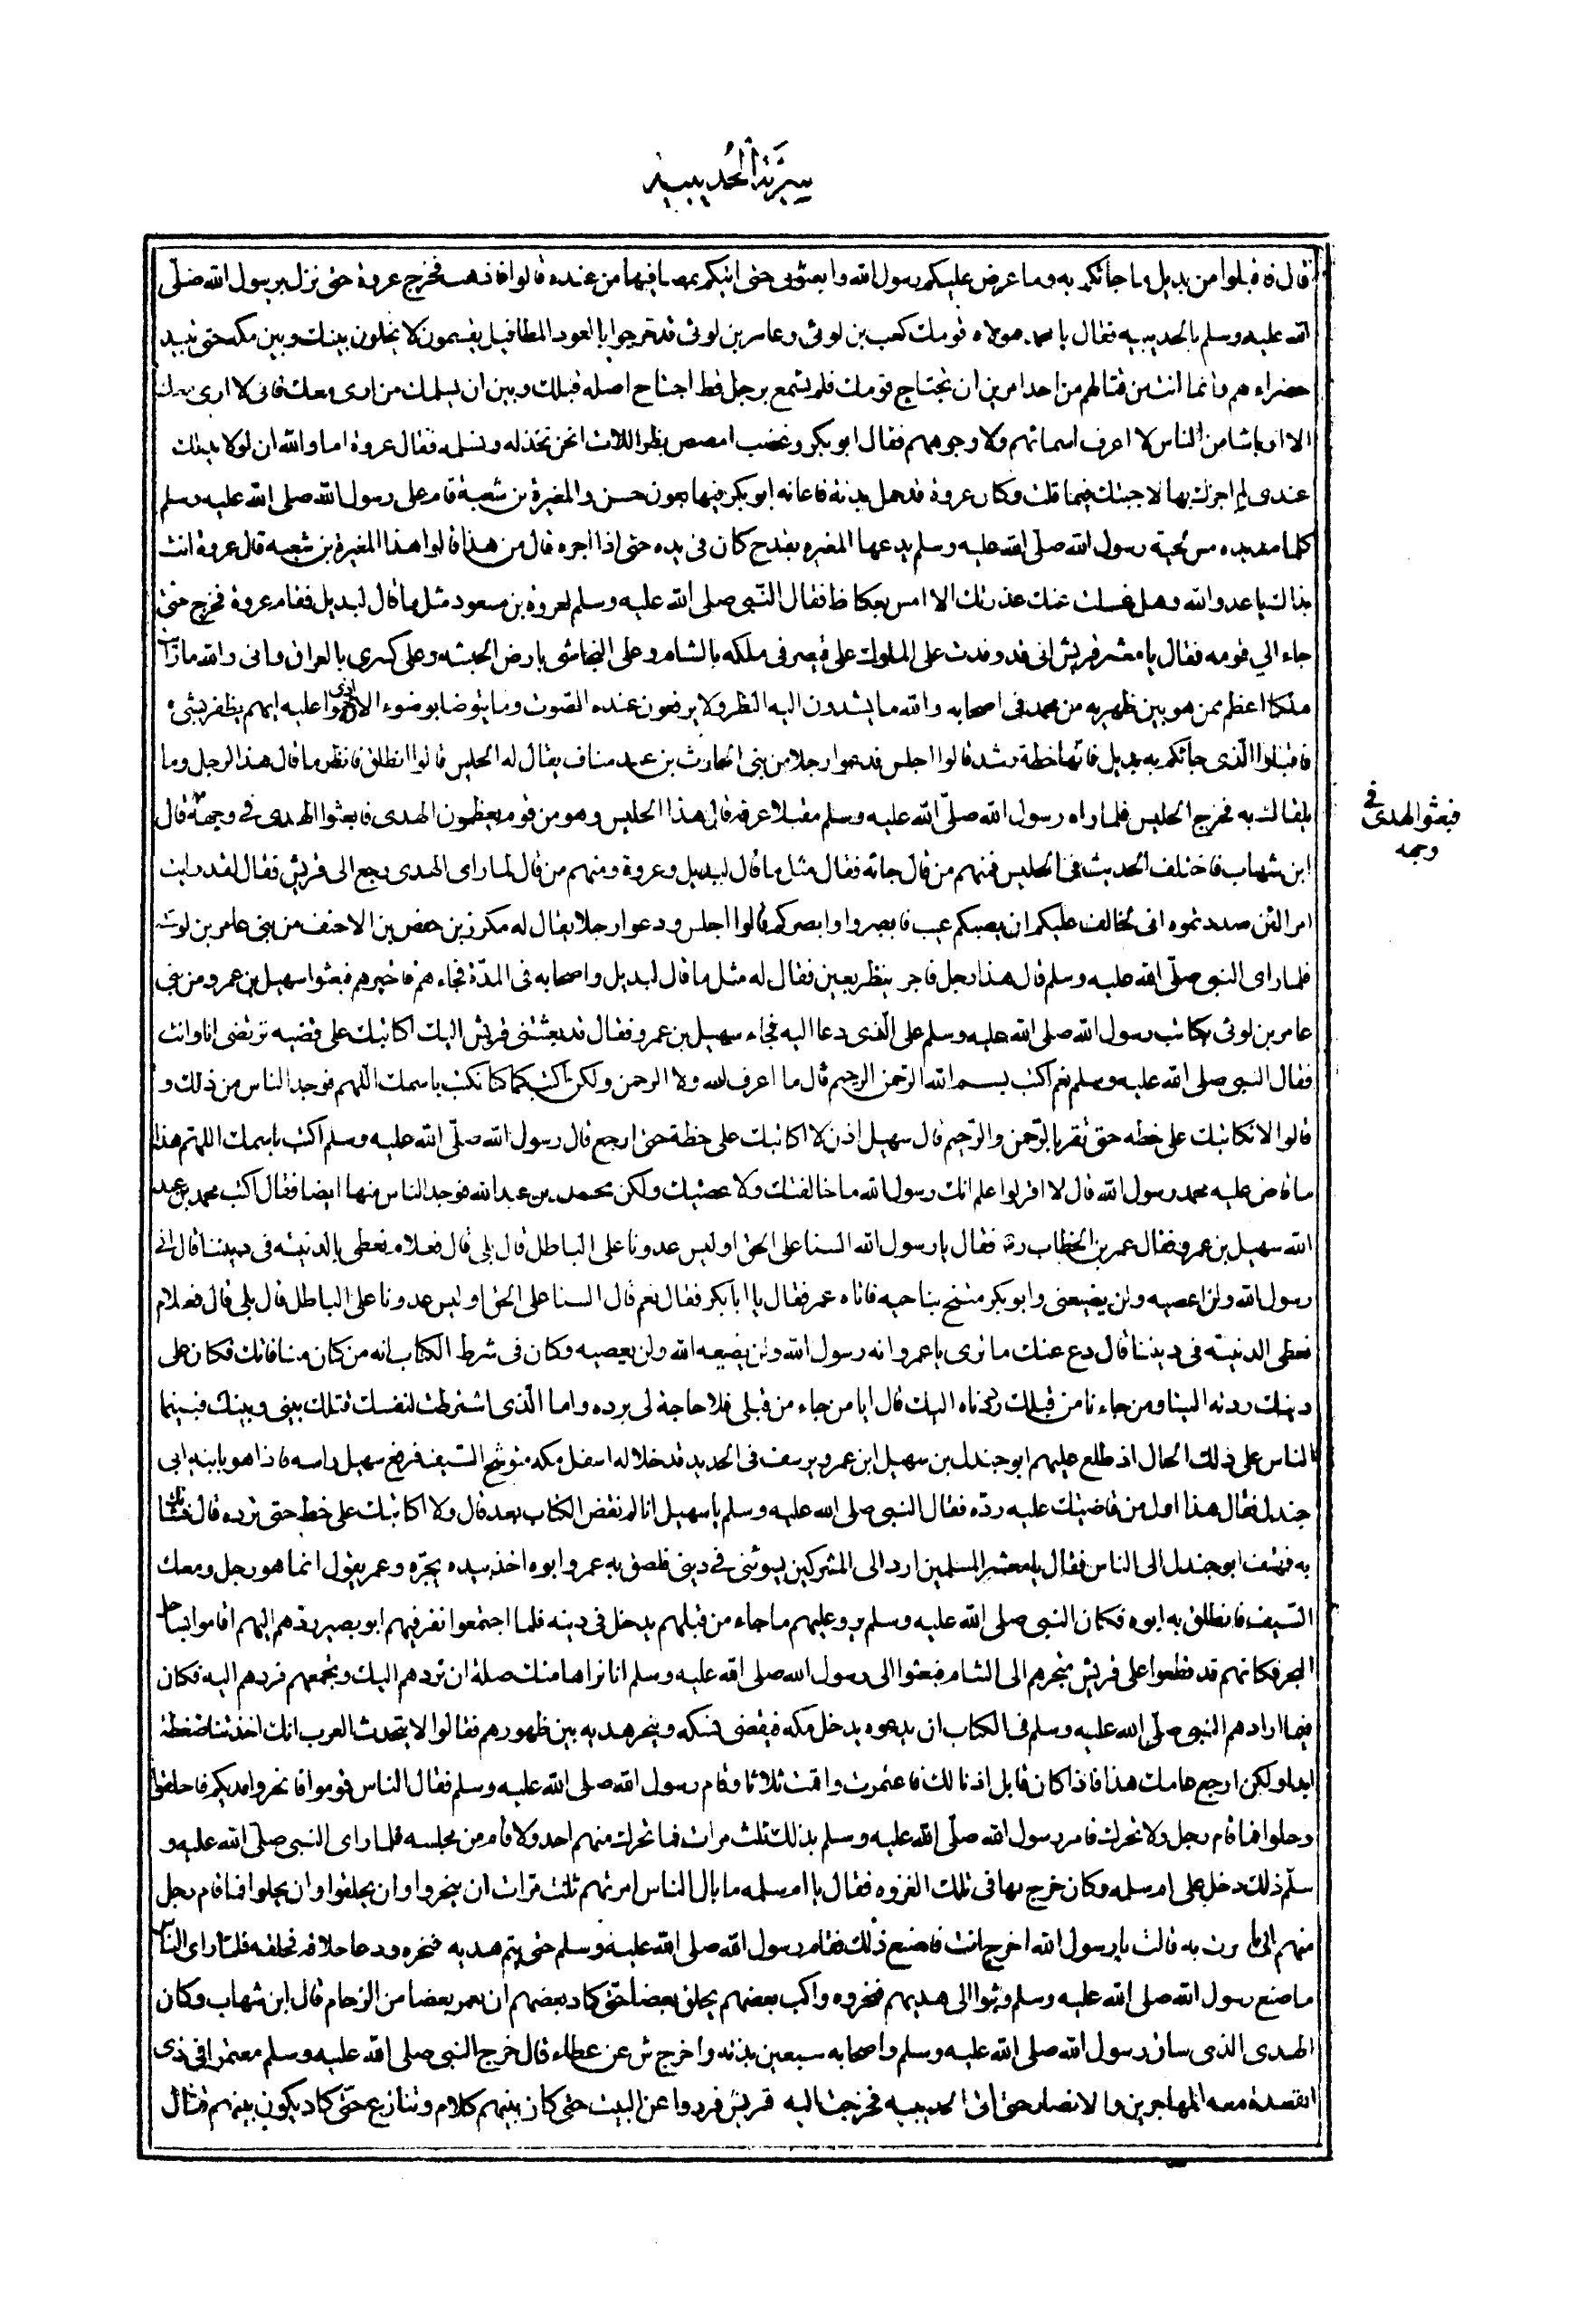 سرية الحديبية
قال فاقبلوا من بديل ما جائكم به وما عرض عليكم رسول الله وابعثونى حتى اتيكم بمصافيها من عنده قالوا فاذهب فخرج عروة حتى نزل برسول الله صلّى
الله عليه وسلم بالحديبيه فقال يا محمد هولاء قومك كعب بن لوئى وعامر بن لوئى قد خرجوا بالعود المطافيل يقسمون لا يخلون بينك وبين مكه حتى تبيد
خضراءهم وانما انت من قتالهم من احد امرين ان تجتاح قومك فلم يسمع برجل قط اجتاح اصله قبلك وبين ان يسلمك من ارى معك فانى لا ارى معك
الا اوباشا من الناس لا اعرف اسمائهم ولا وجوههم فقال ابوبكر وغضب امصص بظر اللات انحن نخذله ونسلمه فقال عروة اما والله ان لولا يد لك
عندى لم اجزك بها لاجبتك فيما قلت وكان عروة قد حمل بدنة فاعانه ابوبكر فيها بعون حسن والمغيرة بن شعبة قام على رسول الله صلى الله عليه وسلم
كلما مد يده مس لحية رسول الله صلى الله عليه وسلم يدعها المغيره بقدح كان فى يده حتى اذا اجره قال من هذا قالوا هذا المغيرة بن شعبه قال عروة انت
بذاك يا عدو الله وهل غسلت عنك عذرتك الا امس بعكاظ فقال النّبى صلى الله عليه وسلم لعروة بن مسعود مثل ما قال لبديل فقام عروة فخرج حتى
جاء الي قومه فقال يا معشر قريش انى قد وفدت على الملوك على قيصر فى ملكه بالشام وعلى النجاشى بارض الحبشه وعلى كسرى بالعراق وانى والله ما رايت
ملكا اعظم ممن هو بين ظهريه من محمد فى اصحابه والله ما يشدون اليه النظر ولا يرفعون عنده الصّوت وما يتوضا بوضوء الا ازدحموا عليه ايهم يظفر بشىء
فاقبلوا الّذى جائكم به بديل فانّها خطة رشد قالوا اجلس فدعوا رجلا من بنى الحارث بن عبد مناف يقال له الحليس قالوا انطلق فانظر ما قال هذا الرجل وما
يلقاك به فخرج الحليس فلما راه رسول الله صلّى الله عليه وسلم مقبلا عرفه قال هذا الحليس وهو من قوم يعظمون الهدى فابعثوا الهدى فى وجهه قال
فبعثوا الهدى فى
وجهه
ابن شهاب فاختلف الحديث فى الحليس فمنهم من قال جائه فقال مثل ما قال لبديل وعروة ومنهم من قال لما راى الهدى رجع الى قريش فقال لقد رايت
امرا لئن صددتموه انى لخائف عليكم ان يصيبكم عيب فابصروا وابصركم قالوا اجلس ودعوا رجلا يقال له مكرز بن حفص بن الاحنف من بنى عامر بن لوئى
فلما راى النبى صلّى الله عليه وسلم قال هذا رجل فاجر ينظر بعين فقال له مثل ما قال لبديل واصحابه فى المدّة فجاءهم فاخبرهم فبعثوا سهيل بن عمرو من بنى
عامر بن لوئى يكاتب رسول الله صلى الله عليه وسلم على الّذى دعا اليه فجاء سهيل بن عمرو فقال قد بعثتنى قريش اليك اكاتبك على قضيه نرتضى انا وانت
فقال النبى صلى الله عليه وسلم نعم اكتب بسم الله الرّحمن الرحيم قال ما اعرف الله ولا الرحمن ولكن اكتب كما كنا نكتب باسمك اللّهم فوجد الناس من ذلك و
قالوا لا نكاتبك على خطه حتى تقر بالرّحمن والرّحيم قال سهيل اذن لا اكاتبك على خطة حتى ارجع قال رسول الله صلّى الله عليه وسلم اكتب باسمك اللهم هذا
ما قاضى عليه محمد رسول الله قال لا اقر لو اعلم انك رسول الله ما خالفتك ولا عصيتك ولكن محمد بن عبد الله فوجد الناس منها ايضا فقال اكتب محمد بن عبد
الله سهيل بن عمرو فقال عمر بن الخطاب رض فقال يا رسول الله السنا على الحق او ليس عدونا على الباطل قال بلى قال فعلام نعطى بالدنيئه فى ديننا قال انى
رسول الله ولن اعصيه ولن يضيعنى وابوبكر متنح بناحيه فاتاه عمر فقال يا ابا بكر فقال نعم قال السنا على الحق او ليس عدونا على الباطل قال بلى قال فعلام
نعطى الدنيئه فى ديننا قال دع عنك ما ترى يا عمر وانه رسول الله ولن يضيعه الله ولن يعصيه وكان فى شرط الكتاب انه من كان منا فاتك فكان على
دينك ردته الينا ومن جاءنا من قبلك رددناه اليك قال اما من جاء من قبلى فلا حاجة لى برده واما الّذى اشترطت لنفسك فتلك بينى وبينك فبينما
الناس على ذلك الحال اذ طلع عليهم ابو جندل بن سهيل ابن عمرو يرسف فى الحديد قد خلا له اسفل مكه متوشح السّيف فرفع سهيل راسه فاذا هو بابنه ابى
جندل فقال هذا اول من قاضيتك عليه ردّه فقال النبى صلى الله عليه وسلم يا سهيل انا لم نقض الكتاب بعد قال ولا اكاتبك على خط حتى ترده قال فشانك
به فهتف ابو جندل الى الناس فقال يا معشر المسلمين ارد الى المشركين يسوئنى فى دينى فلصق به عمر وابوه اخذ بيده يجرّه وعمر يقول انما هو رجل ومعك
السّيف فانطلق به ابوه فكان النبى صلى الله عليه وسلم يرد عليهم ما جاء من قبلهم يدخل فى دينه فلما اجتمعوا نفر فيهم ابو بصير ردّهم اليهم اقاموا بساحل
البحر فكانهم قد قطعوا على قريش متجرهم الى الشام فبعثوا الى رسول الله صلى الله عليه وسلم انا نراها منك صلة ان تردهم اليك وتجمعهم فردهم اليه فكان
فيما ارادهم النبى صلّى الله عليه وسلم فى الكتاب ان يدعوه يدخل مكه فيقضى نسكه وينحر هديه بين ظهورهم فقالوا لا يتحدث العرب انك اخذتنا ضغطة
ابدا ولكن ارجع عامك هذا فاذا كان قابل اذنا لك فاعتمرت واقمت ثلاثا وقام رسول الله صلى الله عليه وسلم فقال الناس قوموا فانحروا هديكم فاحلقوا
وحلوا فما قام رجل ولا تحرك فامر رسول الله صلّى الله عليه وسلم بذلك ثلث مرات فما تحرك منهم احد ولا قام من مجلسه فلما راى النبى صلّى الله عليه و
سلّم ذلك دخل على ام سلمه وكان خرج بها فى تلك الغزوه فقال يا ام سلمه ما بال الناس امرتهم ثلث مرات ان ينحروا وان يحلقوا وان يحلوا فما قام رجل
منهم الى ما امرت به قالت يا رسول الله اخرج انت فاصنع ذلك فقام رسول الله صلى الله عليه وسلم حتى يتم هديه فنحره ودعا حلاقه فحلقه فلما راى الناس
ما صنع رسول الله صلى الله عليه وسلم وثبوا الى هديهم فنحروه واكب بعضهم يحلق بعضا حتّى كاد بعضهم ان يغمر بعضا من الزحام قال ابن شهاب وكان
الهدى الذى ساق رسول الله صلى الله عليه وسلم واصحابه سبعين بدنه واخرج ش عن عطاء قال خرج النبى صلى الله عليه وسلم معتمرا فى ذى
القعدة معه المهاجرين والانصار حتى اتى الحديبيه فخرجت اليه قريش فردوا عن البيت حتى كان بينهم كلام وتنازع حتّى كاد يكون بينهم قتال